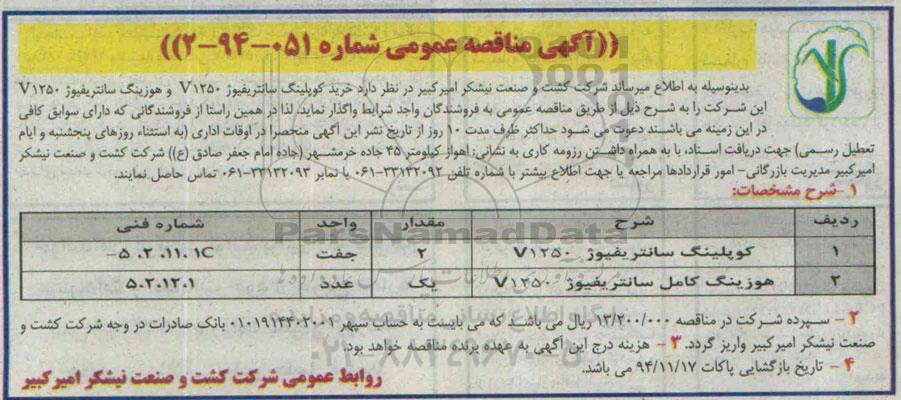 ((آگهی مناقصه عمومی شماره ۰۵۱-۹۴-۲))
بدینوسیله به اطلاع میرساند شرکت کشت و صنعت نیشکر امیرکبیر در نظر دارد خرید کوپلینگ سانتریفیوژ V۱۲۵۰ و هوزینگ سانتریفیوژ V۱۲۵۰
این شرکت را به شرح ذیل از طریق مناقصه عمومی به فروشندگان واجد شرایط واگذار نماید. لذا در همین راستا از فروشندگانی که دارای سوابق کافی
در این زمینه می باشند دعوت می شود حداکثر ظرف مدت ۱۰ روز از تاریخ نشر این آگهی منحصرا در اوقات اداری (به استثناء روزهای پنجشنبه و ایام
تعطیل رسمی) جهت دریافت اسناد، با به همراه داشتن رزومه کاری به نشانی: اهواز کیلومتر ۴۵ جاده خرمشهر (جاده امام جعفر صادق (ع)) شرکت کشت و صنعت نیشکر
امیرکبیر مدیریت بازرگانی- امور قراردادها مراجعه یا جهت اطلاع بیشتر با شماره تلفن ۳۳۱۳۲۰۹۲-۰۶۱ یا نمابر ۳۳۱۳۲۰۹۳-۰۶۱ تماس حاصل نمایند.
۱- شرح مشخصات:
ردیف شرح مقدار واحد شماره فنی
۱ کوپلینگ سانتریفیوژ V۱۲۵۰ ۲ جفت ۵۰۲۰۱۱۰۱C-
۲ هوزینگ کامل سانتریفیوژ V۱۲۵۰ یک عدد ۵۰۲۰۱۲۰۱
۲- سپرده شرکت در مناقصه ۱۳/۲۰۰/۰۰۰ ریال می باشد که می بایست به حساب سپهر ۰۱۰۱۹۱۴۴۰۲۰۰۱ بانک صادرات در وجه شرکت کشت و
صنعت نیشکر امیرکبیر واریز گردد. ۳- هزینه درج این آگهی به عهده برنده مناقصه خواهد بود.
۴- تاریخ بازگشایی پاکات ۹۴/۱۱/۱۷ می باشد.
روابط عمومی شرکت کشت و صنعت نیشکر امیرکبیر
ParsNamadData